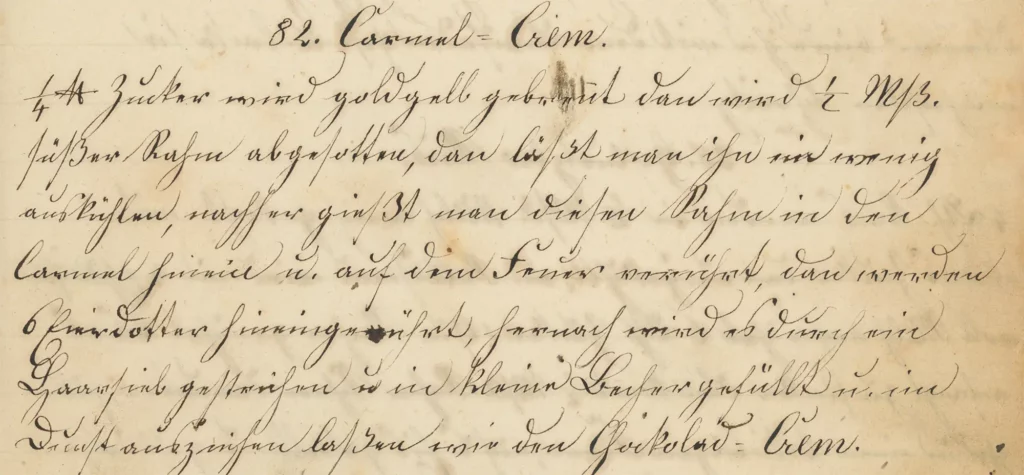 82. Carmel=Crem.
¼ ℔ Zucker wird goldgelb gebrennt dan wird ½ Mß.
süßer Rahm abgesotten, dan läßt man ihn ein wenig
auskühlen, nachher gießt man diesen Rahm in den
Carmel hinein u. auf dem Feuer verrührt, dan werden
6 Eierdotter hineingerührt, hernach wird es durch ein
Haarsieb gestrichen u in kleine Becher gefüllt u. im
Dunst ausziehen laßen wie den Chokolad=Crem.